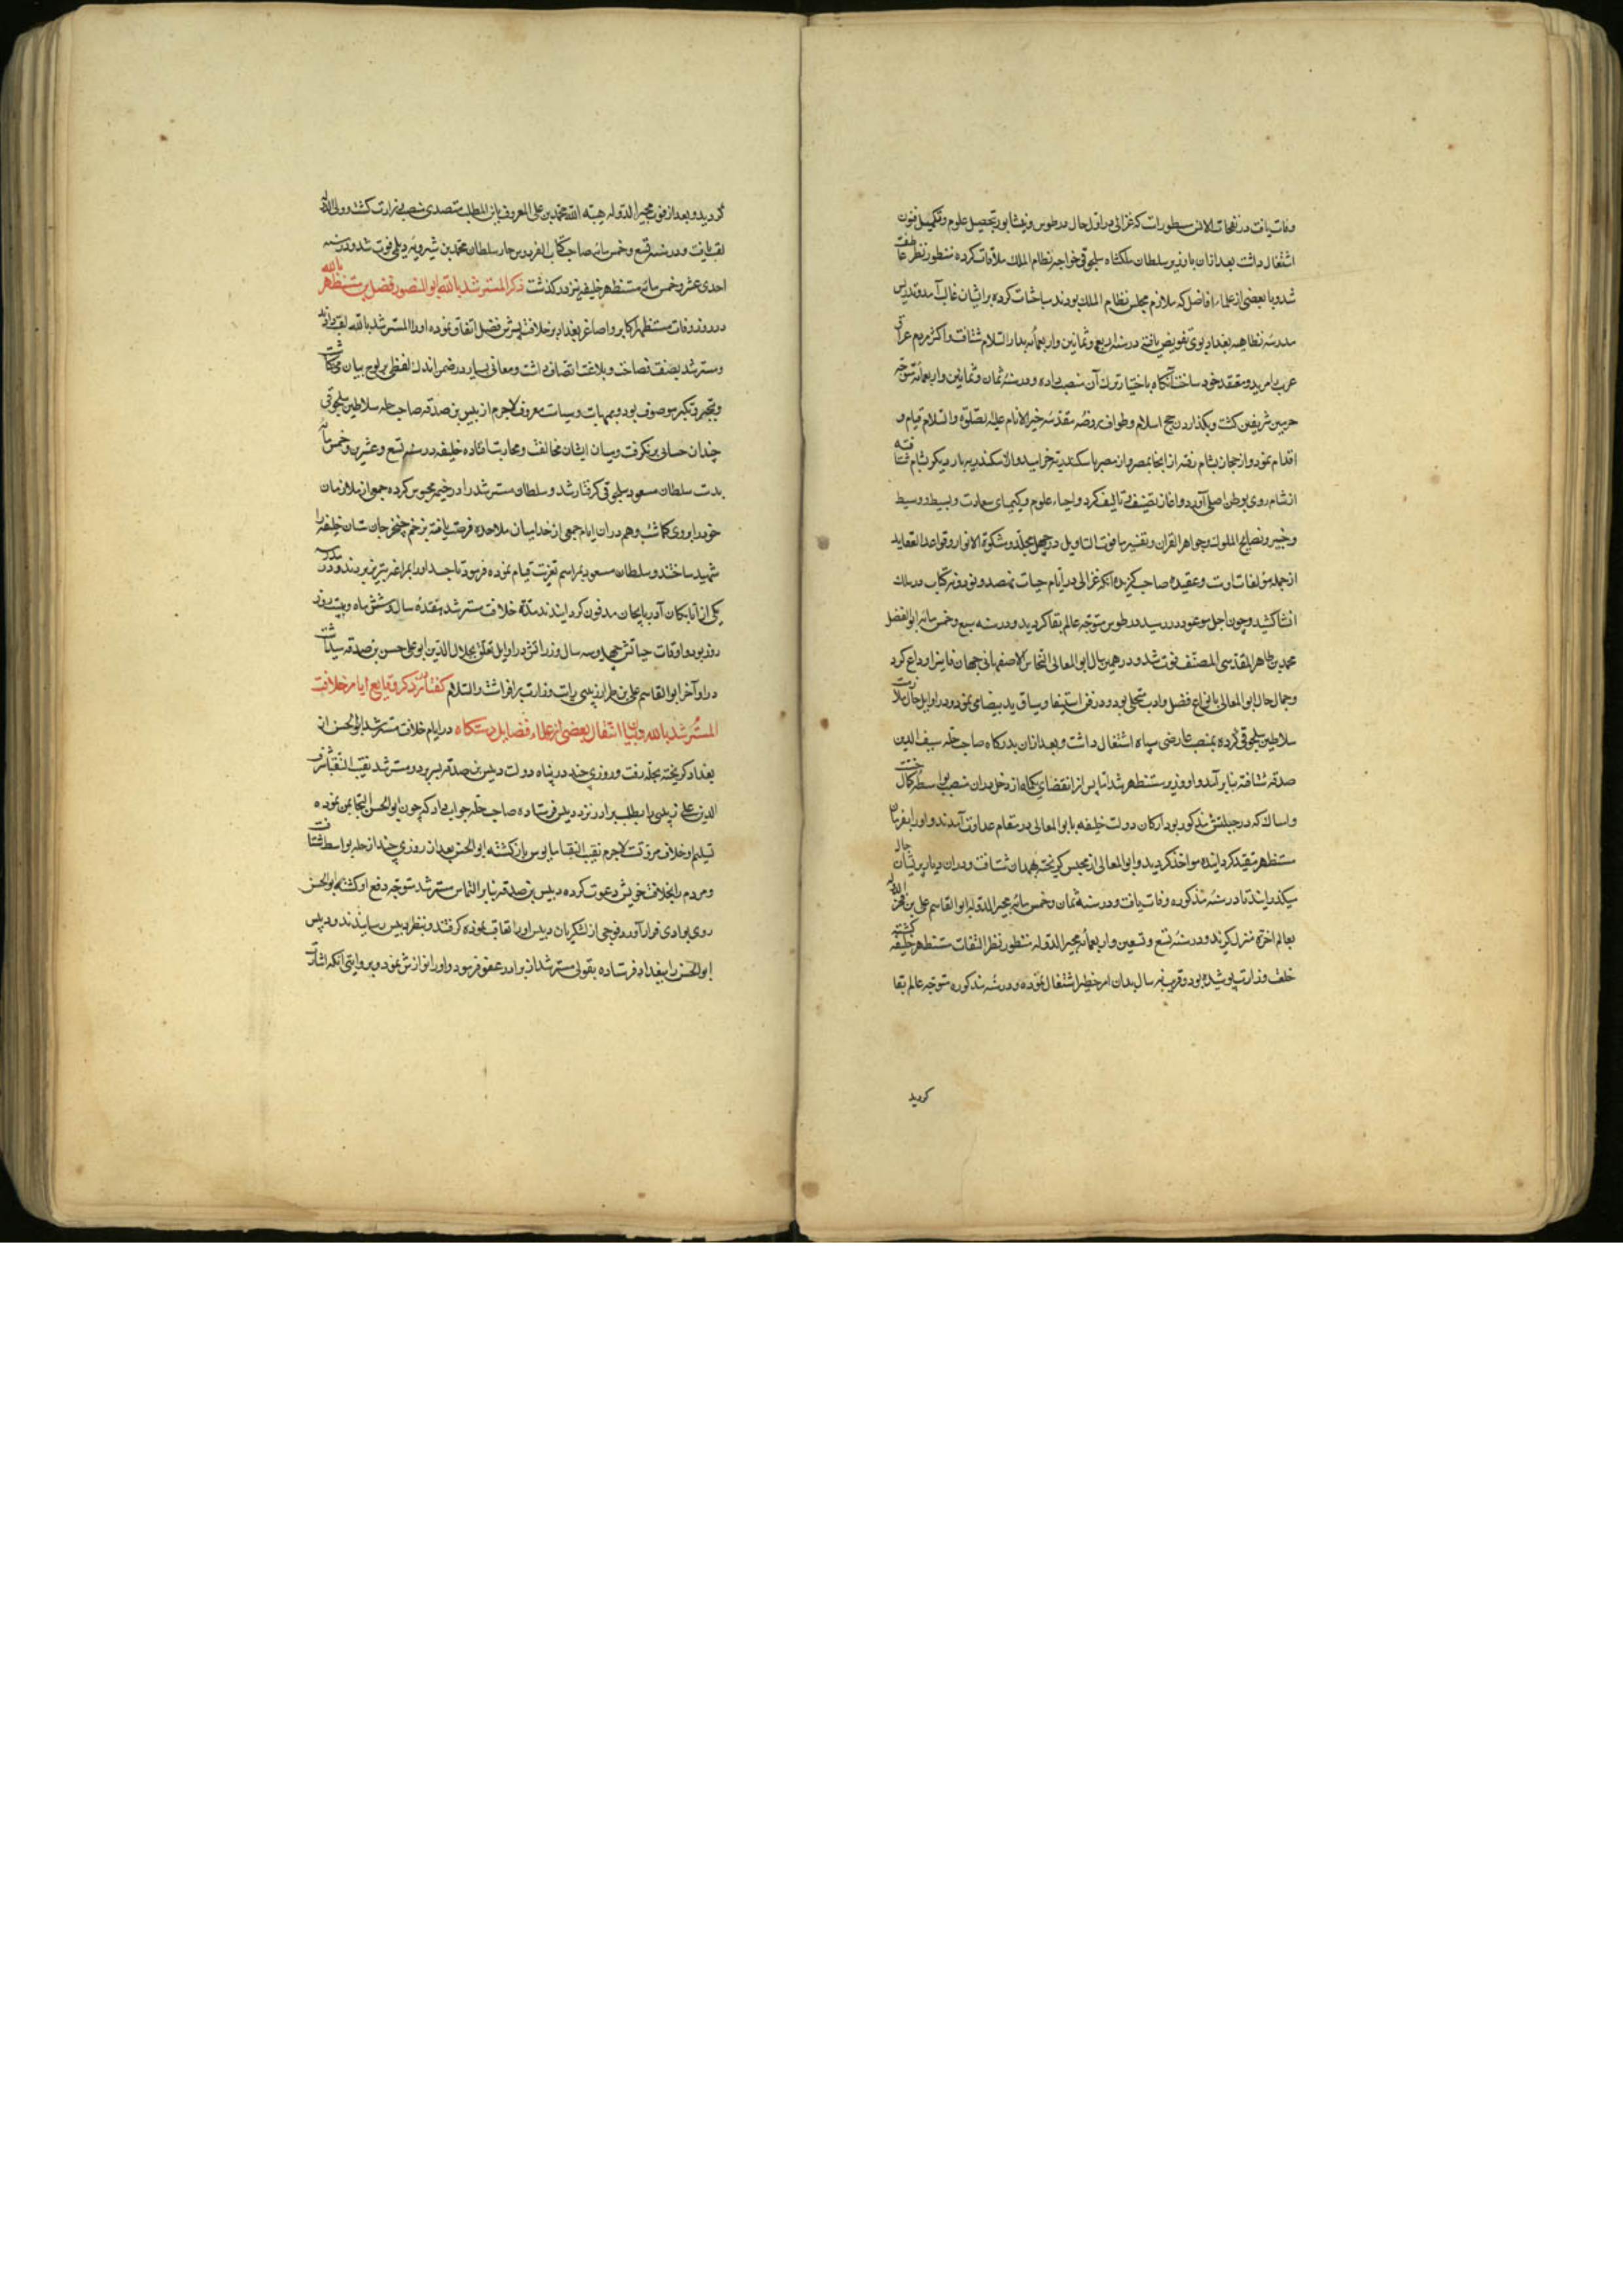 وفات یافت در نفحات الانس مسطورست که غزالی در اول حال در طوس و نیشابور بتحصیل علوم و تکمیل فنون
اشتغال داشت بعد ازان با وزیر سلطان ملکشاه سلجوقی خواجه نظام الملک ملاقات کرده منظور نظر عاطفت
شد و با بعضی از علماء افاضل که ملازم مجلس نظام الملک بودند مباحثات کرده بر ایشان غالب آمد و تدریس
مدرسه نظامیه بغداد بوی تفویض یافته در سنه اربع و ثمانین و اربعمائه بدار السلام شتافت و اکثر مردم عراق
عرب را مرید و معتقد خود ساخت آنگاه باختیار ترک آن منصب داده و در سنه ثمان و ثمانین و اربعمائه متوجه
حرمین شریفین گشت و بگذاردن حج اسلام و طواف روضه مقدسه خیر الانام علیه الصلوة والسلام قیام و
اقدام نمود و از حجاز بشام رفته از انجا بمصر و از مصر باسکندریه خرامید و از اسکندریه بار دیگر بشام شتافته
از شام روی بوطن اصلی آورد و اغاز تصنیف و تالیف کرد و احیاء علوم و کیمیای سعادت و بسیط و وسیط
و وجیز و نصایح الملوک و جواهر القران و تفسیر یاقوت التاویل در چهل مجلد و مشکوة الانوار و قواعد العقاید
از جمله مؤلفات اوست و عقیده صاحب گزیده انکه غزالی در ایام حیات نهصد و نود و نه کتاب در سلک
انشا کشید و چون اجل موعود در رسید در طوس متوجه عالم بقا گردید و در سنه سبع و خمس مائه ابو الفضل
محمد بن طاهر المقدسی المصنف فوت شد و در همین سال ابو المعالی النحاس الاصفهانی جهان فانی را وداع کرد
و جمال حال ابو المعالی بانواع فضل و ادب متحلی بود و در فن استیفا و سیاق ید بیضا می نمود و در اوایل حال ملازمت
سلاطین سلجوقی کرده بمنصب عارضی سپاه اشتغال داشت و بعد ازان بدرگاه صاحب حله سیف الدین
صدقه شتافته بنا بر آمد و او وزیر مستظهر شد اما پس از انقضای یکماه از دخل بدان منصب بواسطه کمال خست
و امساک که در جبلتش مذکور بود ارکان دولت خلیفه با ابو المعالی در مقام عداوت آمدند و او را بفرمان
مستظهر مقید گردانیده مواخذ گردید و ابو المعالی از محبس گریخته بهمدان شتافت و دران دیار پریشان حال
میگذرانید تا در سنه مذکوره وفات یافت و در سنه ثمان و خمس مائه مجیر الدوله ابو القاسم علی بن فخر الدوله
بعالم اخرة منزل گزید و در سنه تسع و تسعین و اربعمائه مجیر الدوله منظور نظر التفات مستظهر خلیفه گشته
خلعت وزارت پوشیده بود و قریب نه سال بدان امر خطیر اشتغال نموده و در سنه مذکوره متوجه عالم بقا
گردید
گردید و بعد از فوت مجیر الدوله هبة الله محمد بن علی المعروف بابن المطلب متصدی منصب وزارت گشت و ولی الدوله
لقب یافت و در سنه تسع و خمس مائه صاحب کتاب الفردوس حار سلطان محمد بن شیرویه دیلمی فوت شد و در سنه
احدی عشر و خمس مائه مستظهر خلیفه نیز در گذشت ذکر المسترشد بالله ابو المنصور فضل بن مستظهر بالله
در روز وفات مستظهر اکابر و اصاغر بغداد بر خلافت پسرش فضل اتفاق نموده او را المسترشد بالله لقب دادند
و مسترشد بصفت فصاحت و بلاغت اتصاف داشت و معانی بسیار در ضمن اندک لفظی بر لوح بیان می نگاشت
و بتجبر و تکبر موصوف بود و بمهابت و سیاست معروف لاجرم از دبیس بن صدقه صاحب حله سلاطین سلجوقی
چندان حسابی بر نگرفت و میان ایشان مخالفت و محاربت افتاده خلیفه در سنه تسع و عشرین و خمس مائه
بدست سلطان مسعود سلجوقی گرفتار شد و سلطان مسترشد را در خیمه محبوس کرده جمعی از ملازمان
خود را بروی گماشت و هم دران ایام جمعی از فدائیان ملاحده فرصت یافته بزخم خنجر جان ستان خلیفه را
شهید ساختند و سلطان مسعود بمراسم تعزیت قیام نموده فرمود تا جسد او را بمراغه تبریز بردند و در مدرسه
یکی از اتابکان آذربایجان مدفون گردانیدند مدة خلافت مسترشد هفده سال و شش ماه و بیست روز
روز بود و اوقات حیاتش چهل و سه سال وزراتش در اوایل تعلق بجلال الدین ابو علی حسن بن صدقه میداشت
در اواخر ابو القاسم علی بن طراد زینبی رایت وزارت بر افراشت والسلام گفتار در ذکر وقایع ایام خلافت
المسترشد بالله و بیان انتقال بعضی از علماء فضایل دستگاه در ایام خلافت مسترشد ابو الحسن از
بغداد گریخته بحله رفت و روزی چند در پناه دولت دبیس بن صدقه بسر برد و مسترشد نقیب النقبا شرف
الدین علی زینبی را بطلب برادر نزد دبیس فرستاده صاحب حله جواب داد که چون ابو الحسن التجا بمن نموده
تسلیم او خلاف مروتست لاجرم نقیب النقبا مایوس باز گشته ابو الحسن بعد از روزی چند از حله بواسط شتافت
و مردم را بخلافت خویش دعوت کرده دبیس بن صدقه بنا بر التماس مسترشد متوجه دفع او گشته ابو الحسن
روی بوادی فرار آورد و فوجی از لشکریان دبیس او را تعاقب نموده گرفتند و بنظر دبیس رسانیدند و دبیس
ابو الحسن را ببغداد فرستاده بقولی مسترشد از برادر عفو فرمود و او را نوازش نمود و بروایتی آنکه اشارت